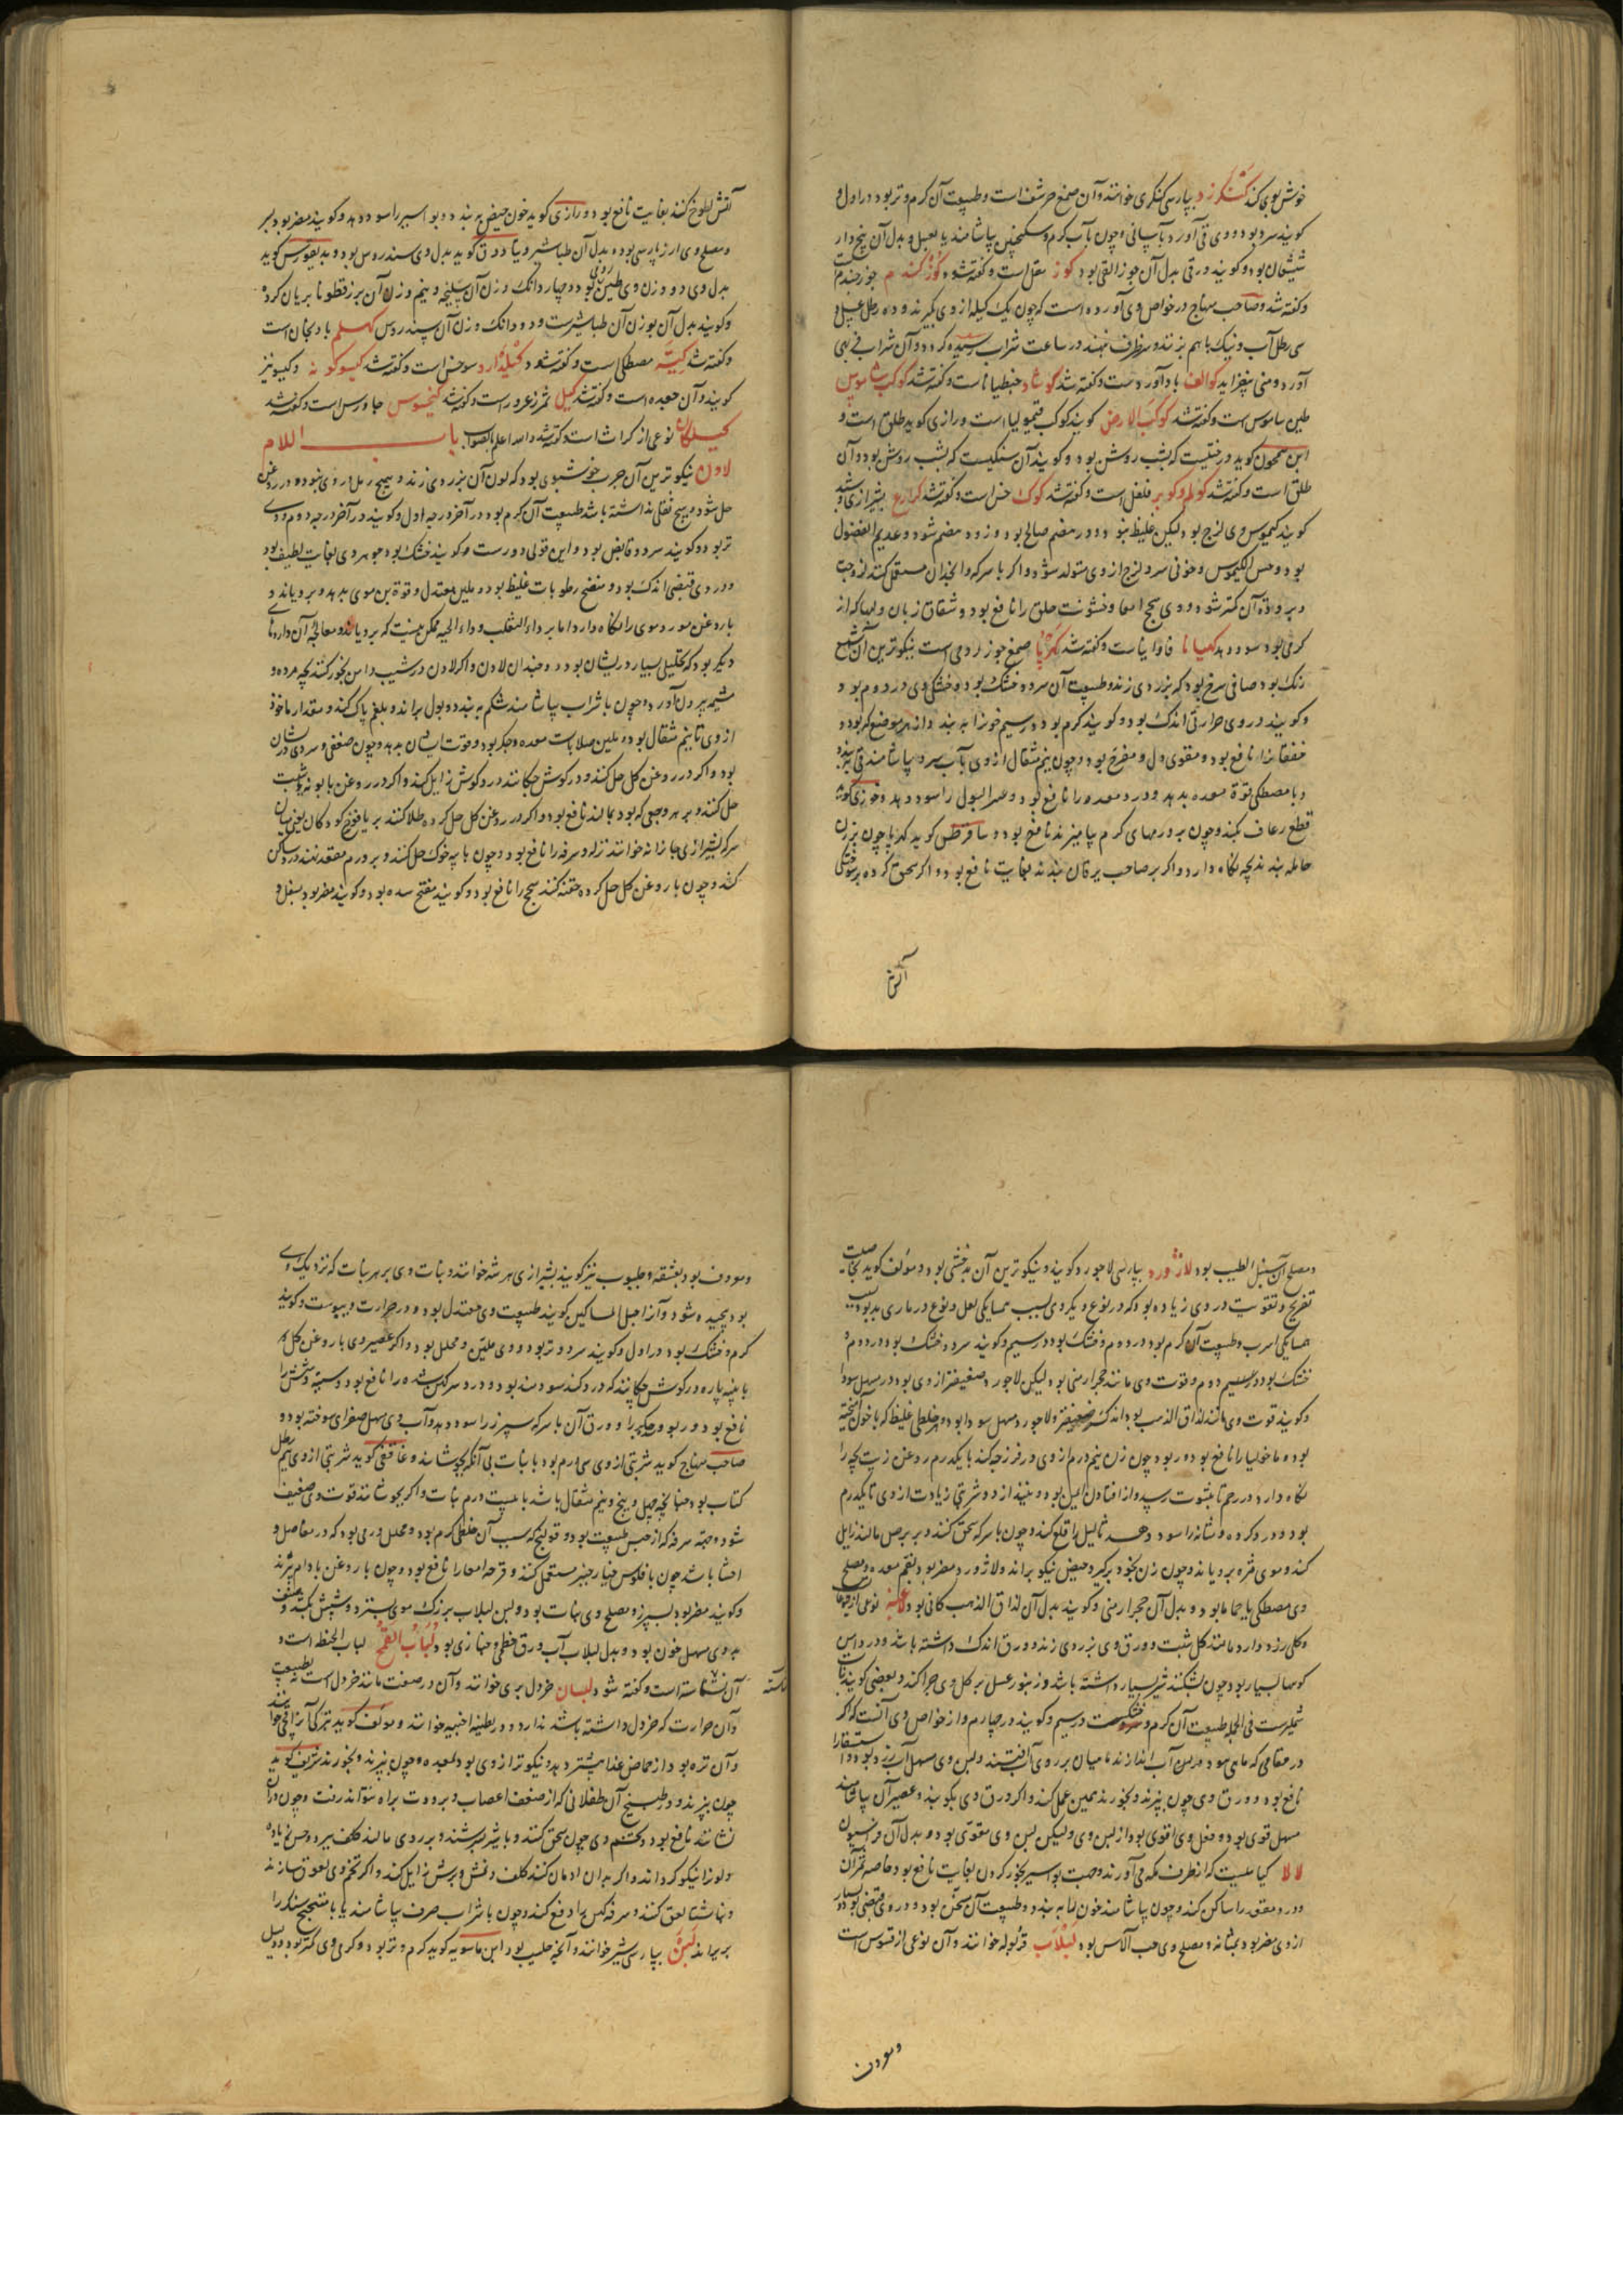 خوش بوی کند کنکرزد بپارسی کنکری خوانند وآن صمغ حرشف است وطبیعت آن کرم وتر بود در اول و
کویند سرد بود ووی قی آورد بآسانی وچون بآب کرم وسکنجبین بیاشامند یا بعسل وبدل آن پنج دار
شیشعان بود وکویند در قی بدل آن جوز القی بود کوز مقل است وکفته شود کوز کندم جوز جندم
وکفته شد وصاحب منهاج در خواص وی آورده است که چون یک کیله از وی بگیرند وده رطل عسل و
سی رطل آب ونیک باهم بزنند وسر ظرف نهند در ساعت شراب رسیده کردد وآن شراب فربهی
آورد ومنی بیفزاید کوالف بادآورد است وکفته شد کوشاد جنطیانا است وکفته شد کوکب شاموس
طین ساموس است وکفته شد کوکب الارض کویند کوکب قیمولیا است ورازی کوید طلق است و
ابن سمحون کوید درختیست که بشب روشن بود وکویند آن سنکیست که بشب روشن بود وآن
طلق است وکفته شد کولم وکوبر فلفل است وکفته شد کوک خس است وکفته شد کراع بشیرازی
کویند کیموس وی لزج بود لیکن غلیظ نبود ودر هضم صالح بود وزود هضم شود وعدیم الفضول
بود وحسن الکیموس وخونی سرد ولزج از وی متولد شود واکر با سرکه وانجدان مستعمل کنند لزوجت
وبرودت آن کمتر شود ووی سحج امعا وخشونت حلق را نافع بود وشقاق زبان ولبها که از
کرمی بود سود دهد کهیانا فاوانیا است وکفته شد کهربا صمغ جوز رومی است نیکوترین آن شمع
رنک بود صافی سرخ بود که بزردی زند وطبیعت آن سرد وخشک بود وخشکی وی در دوم بود و
وکویند در وی حرارتی اندک بود وکویند کرم بود در سیم خون را ببندد از هر موضع که بود و
خفقان را نافع بود ومقوی دل ومفرح بود وچون نیم مثقال از وی بآب سرد بیاشامند قی ببندد
وبا مصطکی قوة معده بدهد ودرد معده را نافع بود وعسر البول را سود دهد وخوزی کوید
قطع رعاف بکند وچون بر ورمهای کرم بیامیزند نافع بود وسافرطس کوید کهربا چون بر زن
حامله بندند بچه نکاه دارد واکر بر صاحب یرقان بندند بغایت نافع بود واکر سحق کرده بر سوختکی
آتش
آتش لطوخ کنند بغایت نافع بود ورازی کوید خون حیض ببندد وبواسیر را سود دهد وکویند مضر بود بسر
ومصلح وی ارز پارسی بود وبدل آن طباشیر ودیادوق کوید بدل وی سندروس بود وبدیغورس کوید
بدل وی دو وزن وی طین رومی بود وچهار دانک وزن آن سلیخه ونیم وزن آن بزر قطونا بریان کرده
وکویند بدل آن بوزن آن طباشیر است ودو دانک وزن آن سندروس کهلم بادنجان است
وکفته شد کیة مصطکی است وکفته شود کیلدارو سرخس است وکفته شد کیسوکونه وکیبونیز
کویند وآن جعده است وکفته شد کیل ثمر زعرور است وکفته شد کیخوس جاورس است وکفته شد
کیلکان نوعی از کراث است وکفته شد والله اعلم بالصواب باب اللام
لادن نیکوترین آن چرب خوشبوی بود که لون آن بزردی زند وهیچ رمل در وی نبود ودر روغن
حل شود وهیچ ثقلی نداشته باشد طبیعت آن کرم بود در آخر درجه اول وکویند در آخر درجه دوم ودر
تر بود وکویند سرد وقابض بود واین قولی دور است وکویند خشک بود جوهر وی بغایت لطیف بود
ودر وی قبضی اندک بود ومنضج رطوبات غلیظ بود وملین معتدل وقوة بن موی بدهد وبرویاند و
با روغن مورد موی را نکاه دارد اما بر داء الثعلب وداء الحیه ممکن نیست که برویاند ومعالجه آن داروهای
دیکر بود که تحلیل بسیار در ایشان بود وچندان لادن واکر لادن در شیب دامن بخور کنند بچه مرده و
مشیمه بیرون آورد وچون با شراب بیاشامند شکم ببندد وبول براند وبلغم پاک کند ومقدار ماخوذ
از وی تا نیم مثقال بود وملین صلابات معده وجکر بود وقوت ایشان بدهد چون ضعفی وسردی در ایشان
بود واکر در روغن کل حل کنند ودر کوش چکانند درد کوش زایل کند واکر در روغن بابونه یا شبت
حل کنند وبر هر وجعی که بود بمالند نافع بود واکر در روغن کل حل کرده طلا کنند بر یافوخ کودکان یعنی میان
سر که بشیرازی جاندانه خوانند نزله وسرفه را نافع بود وچون با پیه خوک حل کنند وبر ورم مقعد نهند درد ساکن
کند وچون با روغن کل حل کرده حقنه کنند سحج را نافع بود وکویند مفتح سده بود وکویند مضر بود بسفل و
ومصلح آن سنبل الطیب بود لازورد بپارسی لاجورد کویند ونیکوترین آن بدخشی بود ومؤلف کوید خاصیت
تفریح وتقویت در وی زیاده بود که در نوع دیکر وی بسبب همسایکی لعل ونوع در ماری بد بود بسبب
همسایکی اسرب وطبیعت آن کرم بود در دوم وخشک بود در سیم وکویند سرد وخشک بود در دوم و
خشک بود در سیم دوم وقوت وی مانند حجر ارمنی بود لیکن لاجورد ضعیفتر از وی بود در مسهل سودا
وکویند قوت وی مانند لذاق الذهب بود اندک ضعیفتر ولاجورد مسهل سودا بود وهر خلطی غلیظ که با خون آمیخته
بود ومالیخولیا را نافع بود وربو وچون زن نیم درم از وی در فرزجه کند با یکدرم روغن زیت بچه را
نکاه دارد در رحم تا بثبوت رسد واز افتادن ایمن بود وبنیندازد وشربتی زیادت از وی تا یکدرم
بود ودرد کرده ومثانه را سود دهد ثآلیل را قلع کند وچون با سرکه سحق کنند وبر برص مالند زایل
کند وموی مژه برویاند وچون زن بخود برکیرد حیض نیکو براند ولاژورد مضر بود بفم معده ومصلح
وی مصطکی یا حماما بود وبدل آن حجر ارمنی وکویند بدل آن لذاق الذهب کانی بود لاغیه نوعی از یتوعات
وکلی زرد دارد مانند کل شبت وورق وی بزردی زند وورق اندک داشته باشد ودر دامن
کوهها بسیار بود چون بشکنند شیر بسیار داشته باشد وزنبور عسل بر کل وی چرا کند وبعضی کویند نبات
شبکرست فی الجمله طبیعت آن کرم وخشکست در سیم وکویند در چهارم واز خواص وی آنست که اکر
در مقامی که ماهی بود در میان آب اندازند ماهیان بر روی آب افتند ولبن وی مسهل آب زرد بود واستسقا را
نافع بود وورق وی چون بپزند وبخورند همین عمل کند واکر ورق وی بکوبند وعصیر آن بیاشامند
مسهل قوی بود وفعل وی اقوی بود از لبن وی ولیکن لبن وی مقوی بود وبدل آن فربیون
لالا کیاهیست که از طرف مکه می آورند وجهت بواسیر بخور کردن بغایت نافع بود خاصه ثمر آن
ودرد مقعد را ساکن کند وچون بیاشامند خون را ببندد وطبیعت آن مسخن بود ودر وی قبضی بود وبسیار
از وی مضر بود بمثانه ومصلح وی حب الآس بود لبلاب قرنوله خوانند وآن نوعی از قسوس است
وسودن
وسودن بود بغشقه وحلبوب نیز کویند بشیرازی هرشه خوانند ونبات وی بر هر نبات که نزدیک وی
بود پیچیده شود وآنرا حبل المساکین کویند طبیعت وی معتدل بود در حرارت ویبوست وکویند
کرم وخشک بود در اول وکویند سرد وتر بود ووی ملین ومحلل بود واکر عصیر وی با روغن کل
با پنبه پاره در کوش چکانند که درد کند سودمند بود ودرد سر کهن شده را نافع بود وسینه وشش را
نافع بود وربو وجکر را وورق آن با سرکه سپرز را سود دهد وآب وی مسهل صفرای سوخته بود و
صاحب منهاج کوید شربتی از وی سی درم بود با نبات بی آنکه بجوشانند وغافقی کوید شربتی از وی نیم رطل
کتاب بود چنانچه چهل وپنج ونیم مثقال باشد با بیست درم نبات واکر بجوشانند قوت وی ضعیف
شود وجهت سرفه که از حبس طبیعت بود وقولنج که سبب آن خلطی کرم بود ومحلل ورمی بود که در مفاصل و
احشا باشد چون با فلوس خیار چنبر مستعمل کنند وقرحه امعا را نافع بود وچون با روغن بادام بپزند
وکویند مضر بود بسپرز ومصلح وی نبات بود ولبن لبلاب بزرک موی بسترد وشپش بکشد
بدوی مسهل خون بود وبدل لبلاب آب ورق خطمی وخبازی بود لباب القمح لباب الحنطه است و
آن نشاسته است وکفته شود لبسان خردل بری خوانند وآن در صفت مانند خردل است بطبیعت
نشاسته
وآن حرارت که خردل داشته باشد ندارد ودر بطینه اخیبه خوانند ومؤلف کوید بترکی آنرا قچی خوانند
وآن تره بود واز حماض غذا بیشتر دهد ونیکوتر از وی بود بمعده وچون بپزند وبخورند شریف کوید
چون بپزند ودر طبیخ آن طفلانی که از ضعف اعصاب وبرودت براه نتوانند رفت وچون در آن
نشانند نافع بود وتخم وی چون سحق کنند وبا شیر بسرشند وبر روی مالند کلف ببرد وحسن زیاده
ولون را نیکو کرداند واکر بدان ادمان کنند کلف ونمش وبرش زایل کند واکر تخم وی لعوق سازند
وناشتا لعق کنند وسرفه کهن را دفع کند وچون با شراب صرف بیاشامند یا با سکنجبین سنک را
بریزاند لبن بپارسی شیر خوانند وآنچه حلیب بود ابن ماسویه کوید کرم وتر بود وکرمی وی کمتر بود ودلیل